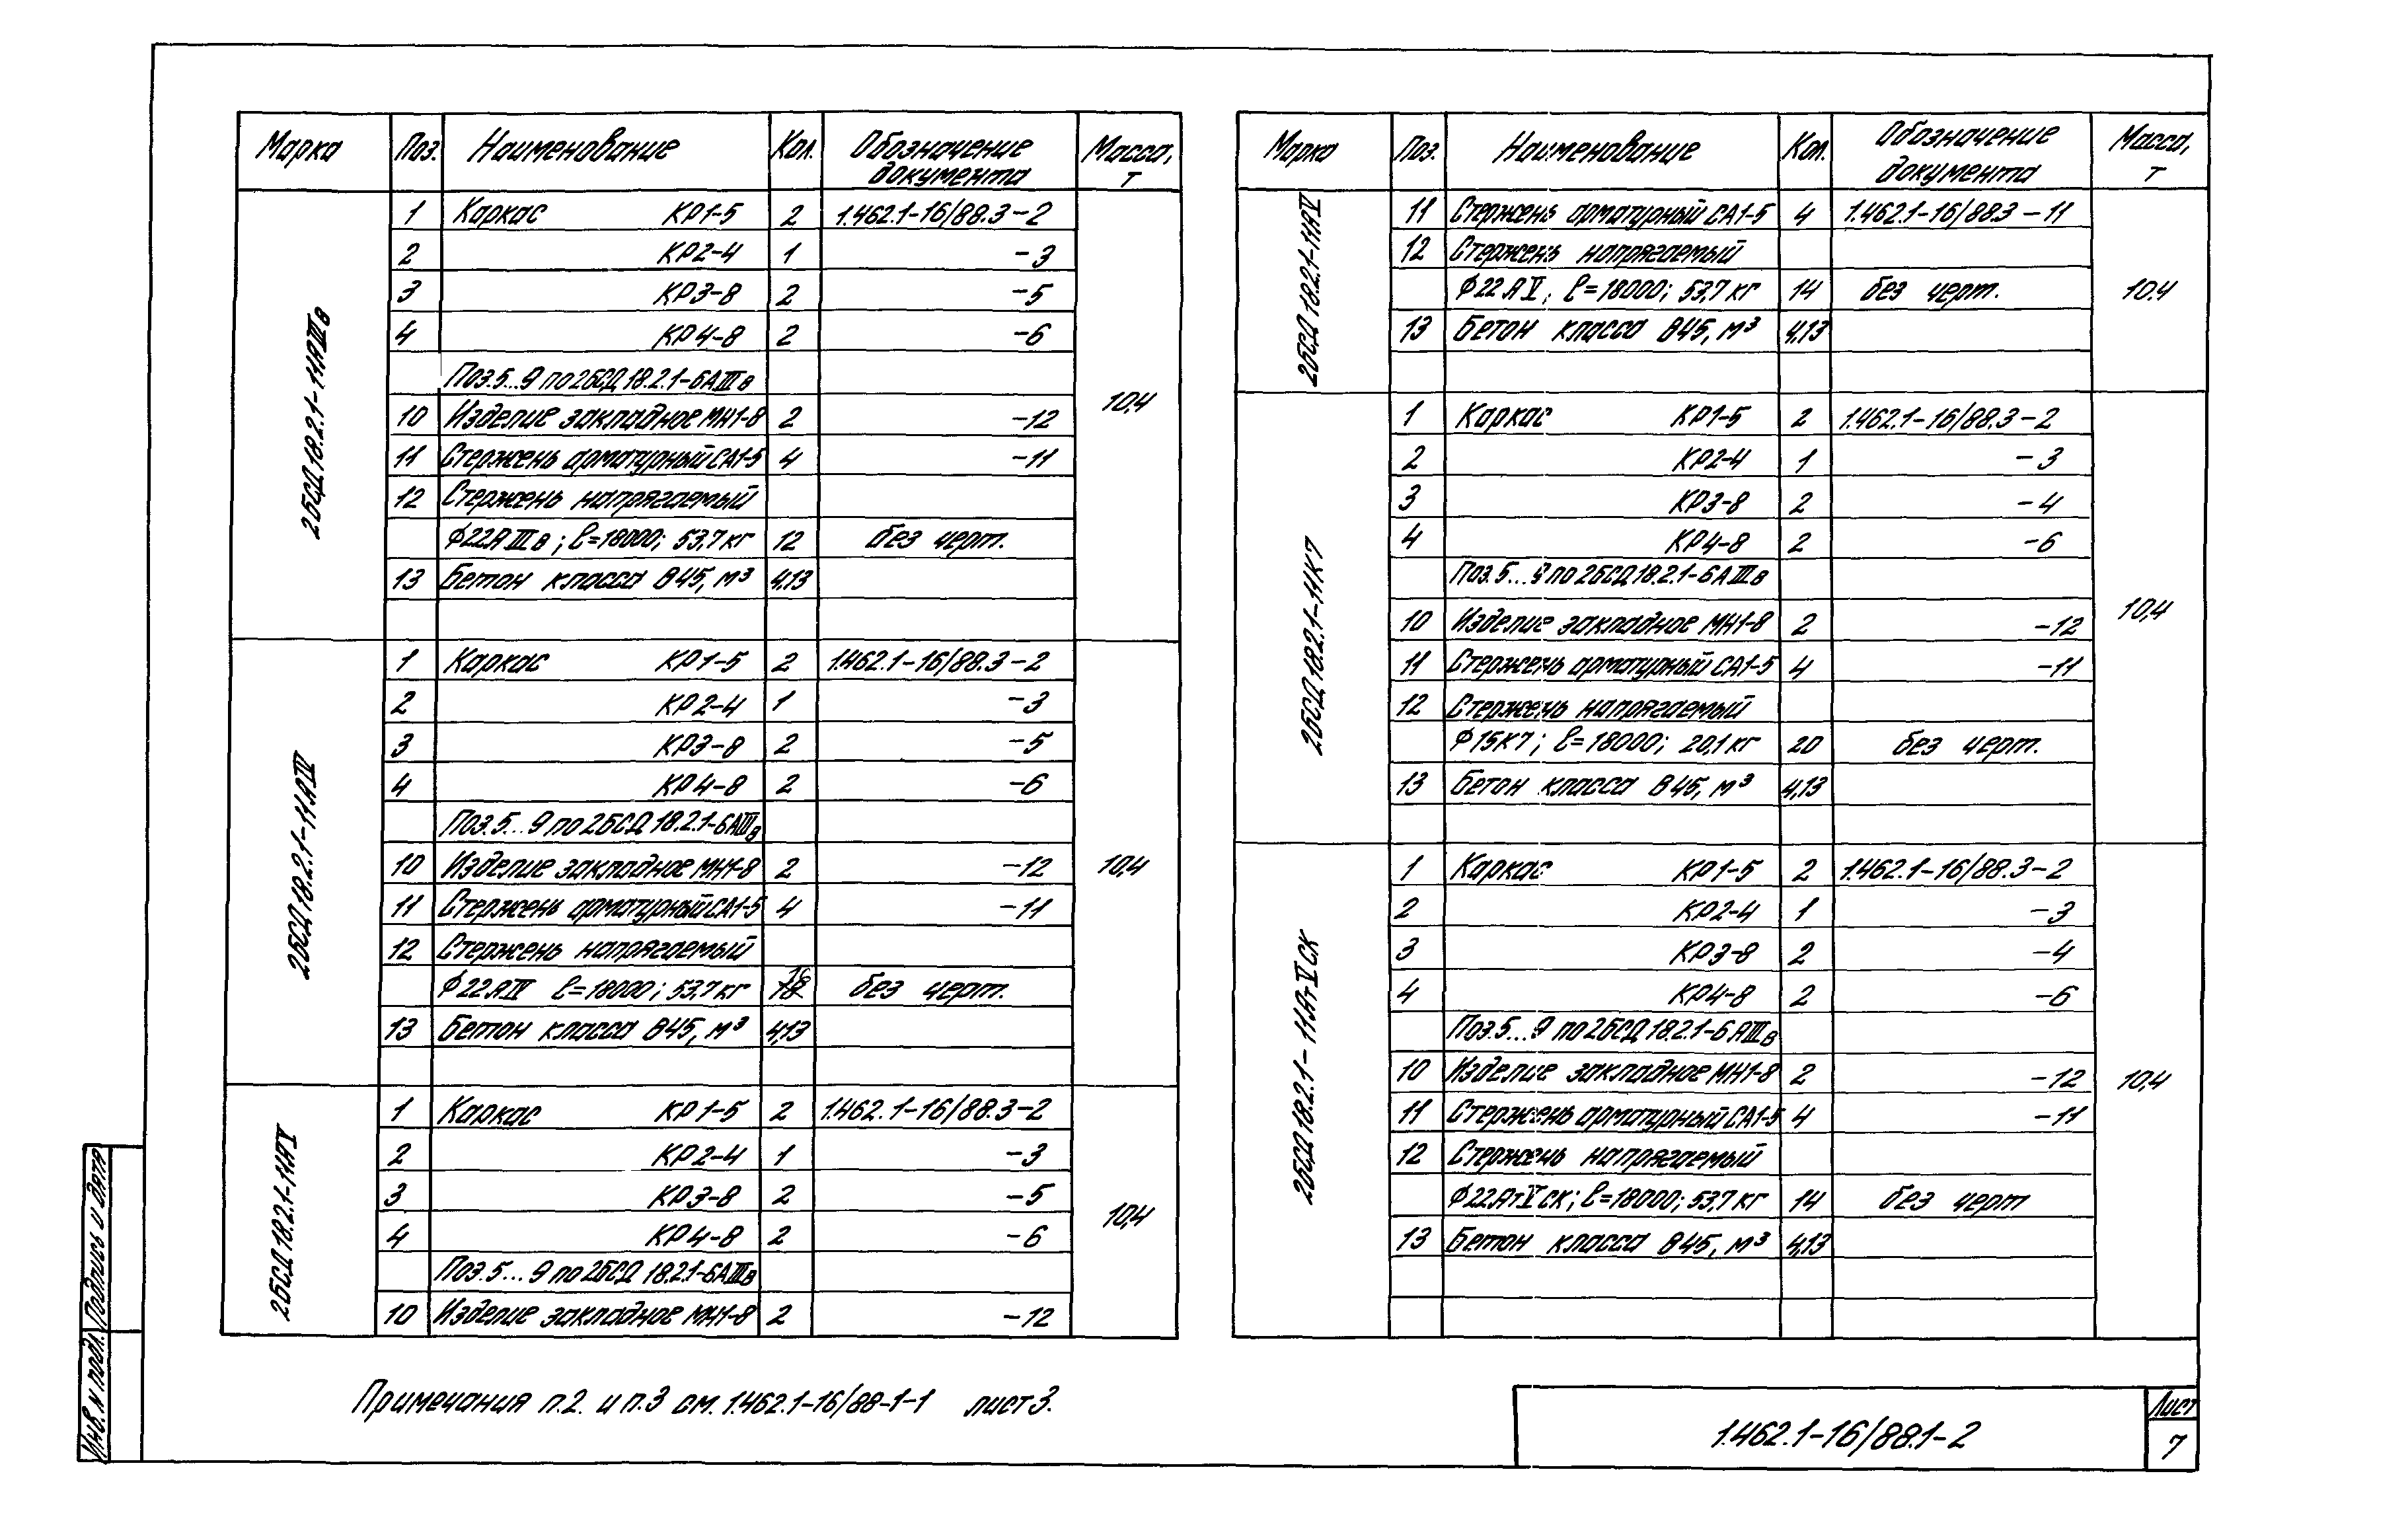 Марка Поз. Наименование Кол. Обозначение документа Масса, т
2БСД 18.2.1-11АIIIв
1 Каркас КР1-5 2 1.462.1-16/88.3-2
2 КР2-4 1 -3
3 КР3-8 2 -5
4 КР4-8 2 -6
Поз.5...9 по 2БСД 18.2.1-6АIIIв
10,4
10 Изделие закладное МН1-8 2 -12
11 Стержень арматурный СА1-5 4 -11
12 Стержень напрягаемый
ϕ22АIIIв; ℓ=18000; 53,7 кг 12 без черт.
13 Бетон класса В45, м³ 4,13
2БСД 18.2.1-11АIV
1 Каркас КР1-5 2 1.462.1-16/88.3-2
2 КР2-4 1 -3
3 КР3-8 2 -5
4 КР4-8 2 -6
Поз.5...9 по 2БСД 18.2.1-6АIIIв
10 Изделие закладное МН1-8 2 -12
10,4
11 Стержень арматурный СА1-5 4 -11
12 Стержень напрягаемый
ϕ22АIV ℓ=18000; 53,7 кг 16 без черт.
13 Бетон класса В45, м³ 4,13
2БСД 18.2.1-11АV
1 Каркас КР1-5 2 1.462.1-16/88.3-2
2 КР2-4 1 -3
3 КР3-8 2 -5
10,4
4 КР4-8 2 -6
Поз.5...9 по 2БСД 18.2.1-6АIIIв
10 Изделие закладное МН1-8 2 -12
Марка Поз. Наименование Кол. Обозначение документа Масса, т
2БСД 18.2.1-11АV
11 Стержень арматурный СА1-5 4 1.462.1-16/88.3-11
12 Стержень напрягаемый
ϕ22АV; ℓ=18000; 53,7 кг 14 без черт. 10.4
13 Бетон класса В45, м³ 4,13
2БСД 18.2.1-11К7
1 Каркас КР1-5 2 1.462.1-16/88.3-2
2 КР2-4 1 -3
3 КР3-8 2 -4
4 КР4-8 2 -6
Поз.5...9 по 2БСД 18.2.1-6АIIIв
10 Изделие закладное МН1-8 2 -12
10,4
11 Стержень арматурный СА1-5 4 -11
12 Стержень напрягаемый
ϕ15К7; ℓ=18000; 20,1 кг 20 без черт.
13 Бетон класса В45, м³ 4,13
2БСД 18.2.1-11АтVСК
1 Каркас КР1-5 2 1.462.1-16/88.3-2
2 КР2-4 1 -3
3 КР3-8 2 -4
4 КР4-8 2 -6
Поз.5...9 по 2БСД 18.2.1-6АIIIв
10 Изделие закладное МН1-8 2 -12
10,4
11 Стержень арматурный СА1-5 4 -11
12 Стержень напрягаемый
ϕ22АтVСК; ℓ=18000; 53,7 кг 14 без черт
13 Бетон класса В45, м³ 4,13
Примечания п.2. и п.3 см. 1.462.1-16/88-1-1 лист 3.
1.462.1-16/88.1-2
Лист
7
Инв. N подл. Подпись и дата